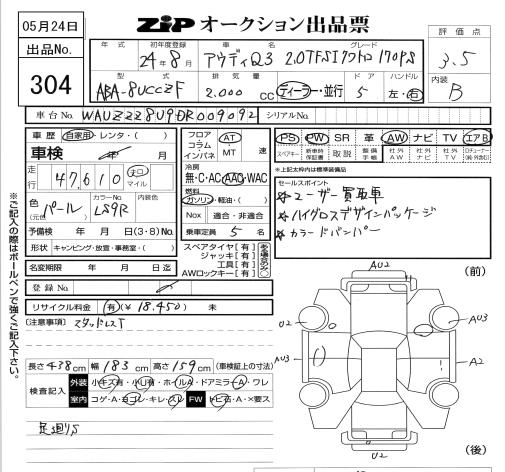 05月24日
ZIP オークション出品票
出品No.
304
年式 初年度登録 車名 グレード
24年8月 アウディQ3 2.0TFSIクワトロ170PS
型式 排気量 ドア ハンドル
ABA-8UCCZF 2.000 CC ディーラー・並行 5 左・右
評価点
3.5
内装
B
車台No. WAUZZZ8U9DR009092 シリアルNo.
車歴 自家用・レンタ・( )
車検 年 月
走行 47,610 キロ マイル
色 (元色) パール カラーNo. LS9R 内装色
予備検 年 月 日(3・8)No.
形状 キャンピング・放宣・事務室・( )
名変期限 年 月 日迄
登録No.
リサイクル料金 有(¥ 18.450) 未
フロア コラム インパネ AT ・MT 速
冷房
無・C・AC・AAC・WAC
燃料
ガソリン・軽油・( )
Nox 適合・非適合
乗車定員 5 名
スペアタイヤ【有】
ジャッキ【有】
工具【有】
AWロックキー【有】
PS PW SR 革 AW ナビ TV エアB
スペアキー 新車時保証書 取説 整備手帳 社外AW 社外ナビ 社外TV
※上記太枠内は標準装備品
セールスポイント
★ユーザー買取車
★ハイグロスデザインパッケージ
★カラードバンパー
(注意事項) スタッドレスT
長さ438cm 幅183cm 高さ159cm (車検証上の寸法)
検査記入 外装 小キズ有・小U有・ホイルA・ドアミラーA・ワレ
室内 コゲA・ヨゴレ・キレ・スレ FW トビ石・A・×要ス
足廻りS
※ご記入の際はボールペンで強くご記入下さい。
(前)
AU2
U2
AU3
AU3
A2
U2
(後)